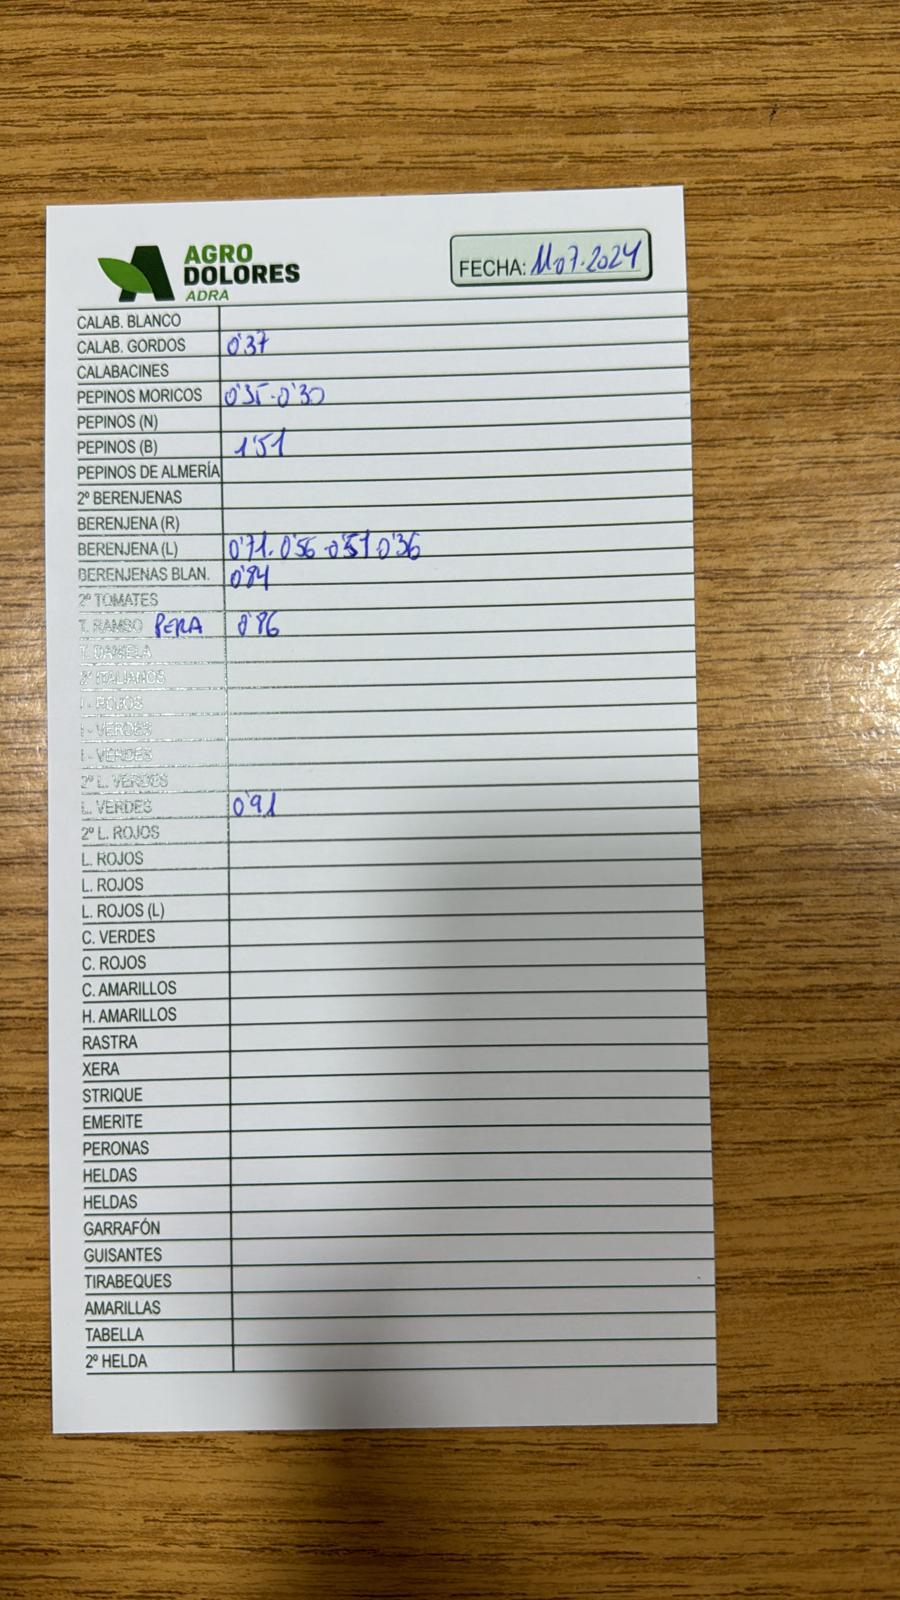 AGRO
DOLORES
ADRA
FECHA: 11-07-2024
CALAB. BLANCO
CALAB. GORDOS 0'37
CALABACINES
PEPINOS MORICOS 0'35-0'30
PEPINOS (N)
PEPINOS (B) 1'51
PEPINOS DE ALMERÍA
2º BERENJENAS
BERENJENA (R)
BERENJENA (L) 0'71. 0'56 -0'51 0'36
BERENJENAS BLAN. 0'84
2º TOMATES
T. RAMBO PERA 0'86
T. DANIELA
2º ITALIANOS
I - ROJOS
I - VERDES
I - VERDES
2º L. VERDES
L. VERDES 0'91
2º L. ROJOS
L. ROJOS
L. ROJOS
L. ROJOS (L)
C. VERDES
C. ROJOS
C. AMARILLOS
H. AMARILLOS
RASTRA
XERA
STRIQUE
EMERITE
PERONAS
HELDAS
HELDAS
GARRAFÓN
GUISANTES
TIRABEQUES
AMARILLAS
TABELLA
2º HELDA